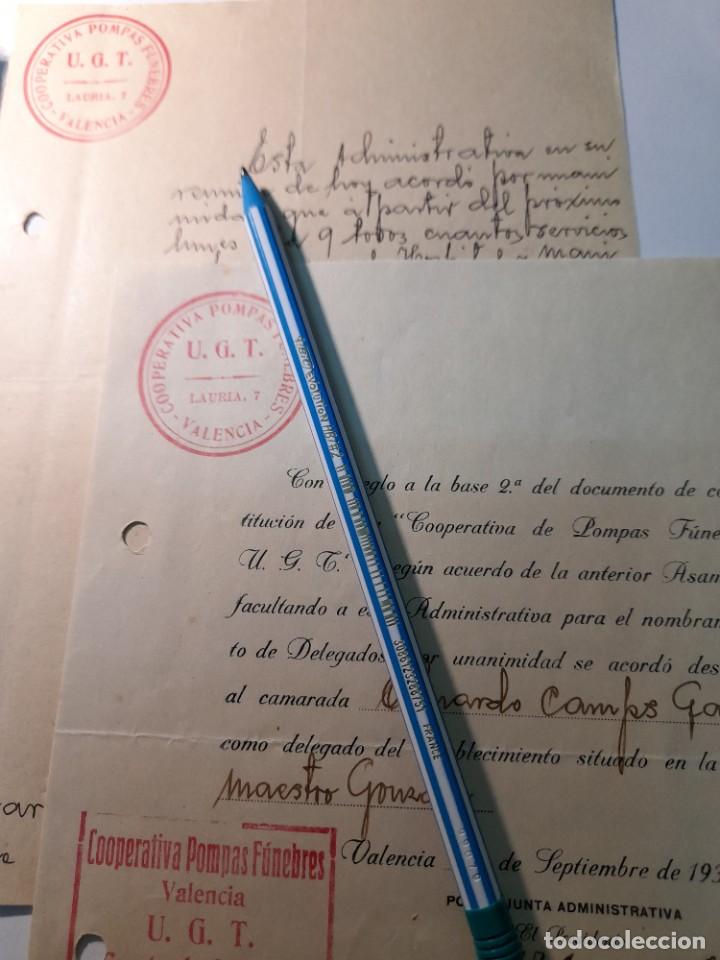 COOPERATIVA POMPAS FÚNEBRES
U. G. T.
LAURIA, 7
- VALENCIA -
Esta Administrativa en su
de hoy acordó por
que á partir del próximo
9 todos cuantos servicios
COOPERATIVA POMPAS FÚNEBRES
U. G. T.
LAURIA, 7
- VALENCIA -
Con eglo a la base 2.ª del documento de co
titución de "Cooperativa de Pompas Fúne
U. G. T." egún acuerdo de la anterior Asam
facultando a es Administrativa para el nombram
to de Delegados or unanimidad se acordó des
al camarada nardo Camps Go
como delegado del blecimiento situado en la
maestro Gonza
Valencia de Septiembre de 193
PO JUNTA ADMINISTRATIVA
El
Cooperativa Pompas Fúnebres
Valencia
U. G. T.
BIC EVOLUTION HB
FRANCE
todocoleccion.net